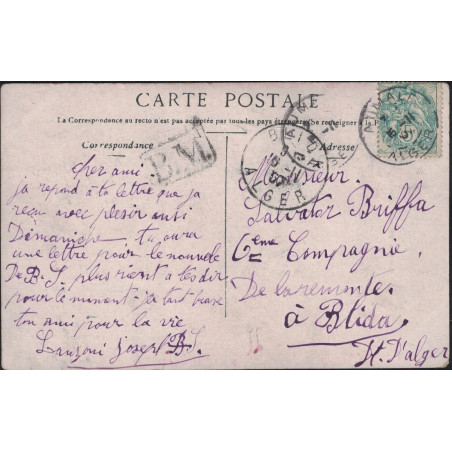 CARTE POSTALE
La Correspondance au recto n'est pas acceptée par tous les pays étrangers (Se renseigner à la
Correspondance
Adresse
B.M.
BLIDA
ALGER
AUMALE
ALGER
cher ami
ja repond a te lettre que ja
reçu avec plesir anti
Dimaniope, tu aura
une lettre pour le nouvele
De B. S. plus rient a tes dir
pour le minant - ja tant brase
ton ami pour la vie
Lanzoni Joseph B. S.
Monsieur
Salvator Briffa
6eme Compagnie
De la remonte.
à Blida
Dt. D'alger